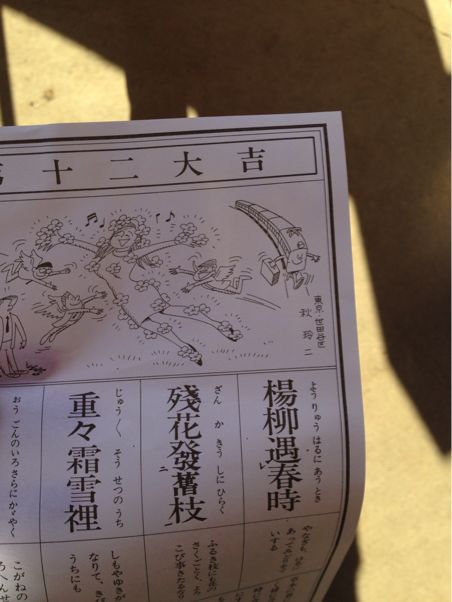 第十二大吉
東京・世田谷区
秋玲二
よう りゅう はるに あうとき
楊柳遇春時
ざん か きう しに ひらく
殘花發舊枝
じゅう〱 そう せつの うち
重々霜雪裡
おう ごんのいろさらに かゞやく
ふるき枝にも花の
さくごとく、よろ
こび事きたるなり
しもやゆきが
なりて、き
うちにも
こがねの